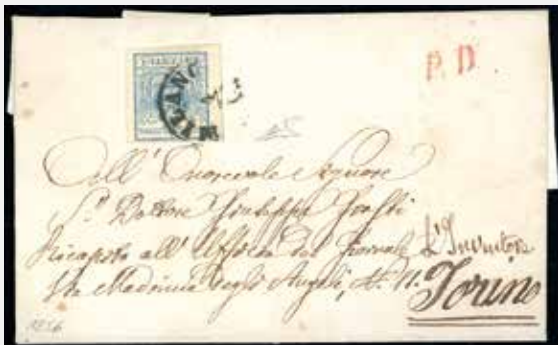 MILANO
P. D.
All' Onorevole Signore
Sr. Dottore Giuseppe
Ricapito all' Ufficio del Giornale L'Inventore
Via Madonna degli Angeli, N. 11.
Torino
1856